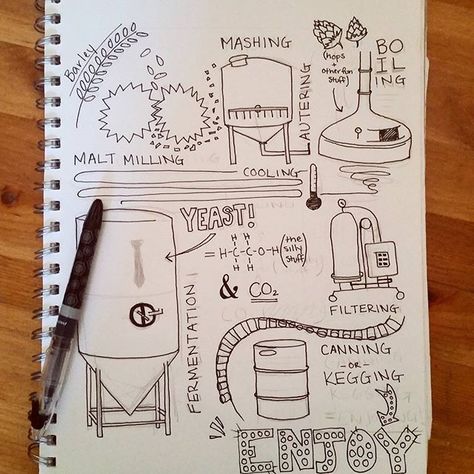 Barley
MASHING
LAUTERING
(hops
+
other fun
stuff)
BOILING
MALT MILLING
COOLING
YEAST!
H H
H-C-C-O-H
H H
=
(the
silly
stuff)
& CO₂
FERMENTATION
FILTERING
CANNING
-OR-
KEGGING
ENJOY